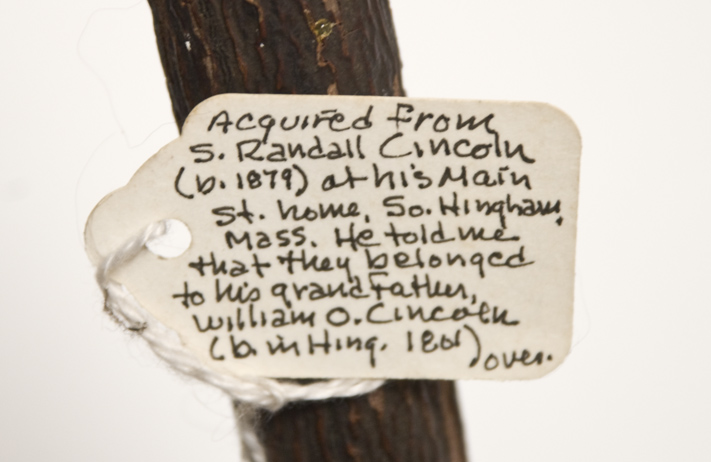 Acquired from
S. Randall Lincoln
(b. 1879) at his Main
St. home, So. Hingham,
Mass. He told me
that they belonged
to his grandfather,
William O. Lincoln
(b. in Hing. 1801)
over.